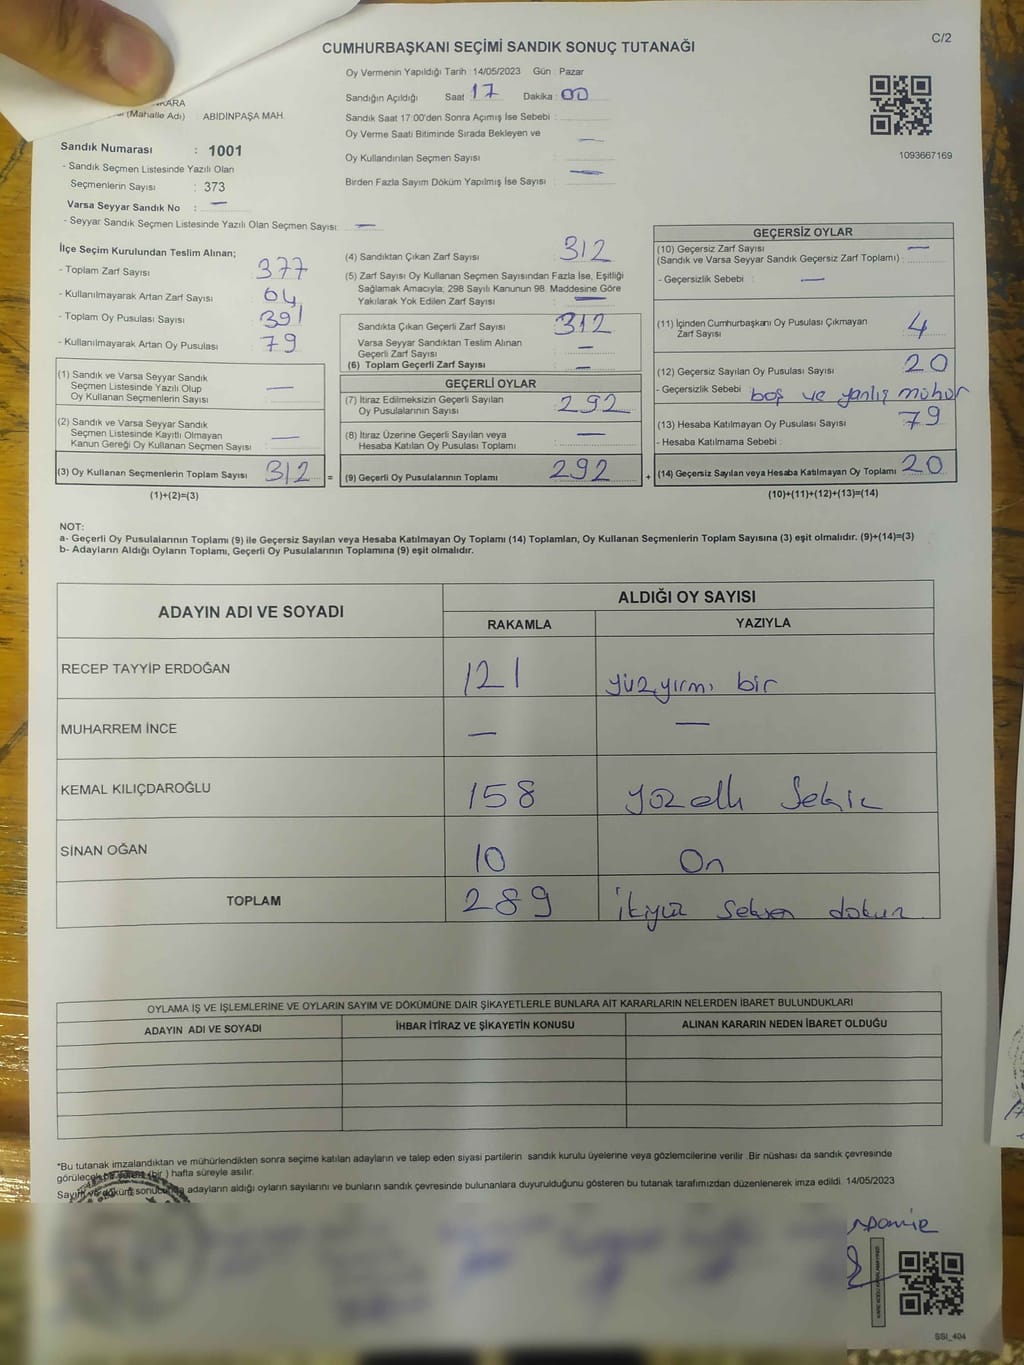 CUMHURBAŞKANI SEÇİMİ SANDIK SONUÇ TUTANAĞI
C/2
Oy Vermenin Yapıldığı Tarih : 14/05/2023 Gün : Pazar
Sandığın Açıldığı Saat 17 Dakika : 00
(Mahalle Adı) : ABİDİNPAŞA MAH.
Sandık Saat 17:00'den Sonra Açımış İse Sebebi :
Oy Verme Saati Bitiminde Sırada Bekleyen ve
Oy Kullandırılan Seçmen Sayısı : —
Birden Fazla Sayım Döküm Yapılmış İse Sayısı : —
1093667169
Sandık Numarası : 1001
- Sandık Seçmen Listesinde Yazılı Olan
Seçmenlerin Sayısı : 373
Varsa Seyyar Sandık No : —
- Seyyar Sandık Seçmen Listesinde Yazılı Olan Seçmen Sayısı: —
İlçe Seçim Kurulundan Teslim Alınan;
- Toplam Zarf Sayısı : 377
- Kullanılmayarak Artan Zarf Sayısı : 64
- Toplam Oy Pusulası Sayısı : 391
- Kullanılmayarak Artan Oy Pusulası : 79
(1) Sandık ve Varsa Seyyar Sandık
Seçmen Listesinde Yazılı Olup
Oy Kullanan Seçmenlerin Sayısı : —
(2) Sandık ve Varsa Seyyar Sandık
Seçmen Listesinde Kayıtlı Olmayan
Kanun Gereği Oy Kullanan Seçmen Sayısı : —
(3) Oy Kullanan Seçmenlerin Toplam Sayısı : 312 =
(1)+(2)=(3)
(4) Sandıktan Çıkan Zarf Sayısı : 312
(5) Zarf Sayısı Oy Kullanan Seçmen Sayısından Fazla İse, Eşitliği
Sağlamak Amacıyla; 298 Sayılı Kanunun 98. Maddesine Göre
Yakılarak Yok Edilen Zarf Sayısı : —
Sandıkta Çıkan Geçerli Zarf Sayısı : 312
Varsa Seyyar Sandıktan Teslim Alınan
Geçerli Zarf Sayısı : —
(6) Toplam Geçerli Zarf Sayısı : —
GEÇERLİ OYLAR
(7) İtiraz Edilmeksizin Geçerli Sayılan
Oy Pusulalarının Sayısı : 292
(8) İtiraz Üzerine Geçerli Sayılan veya
Hesaba Katılan Oy Pusulası Toplamı : —
(9) Geçerli Oy Pusulalarının Toplamı : 292 +
GEÇERSİZ OYLAR
(10) Geçersiz Zarf Sayısı —
(Sandık ve Varsa Seyyar Sandık Geçersiz Zarf Toplamı) :
- Geçersizlik Sebebi : —
(11) İçinden Cumhurbaşkanı Oy Pusulası Çıkmayan
Zarf Sayısı : 4
(12) Geçersiz Sayılan Oy Pusulası Sayısı : 20
- Geçersizlik Sebebi : boş ve yanlış mühür
(13) Hesaba Katılmayan Oy Pusulası Sayısı : 79
- Hesaba Katılmama Sebebi :
(14) Geçersiz Sayılan veya Hesaba Katılmayan Oy Toplamı : 20
(10)+(11)+(12)+(13)=(14)
NOT:
a- Geçerli Oy Pusulalarının Toplamı (9) ile Geçersiz Sayılan veya Hesaba Katılmayan Oy Toplamı (14) Toplamları, Oy Kullanan Seçmenlerin Toplam Sayısına (3) eşit olmalıdır. (9)+(14)=(3)
b- Adayların Aldığı Oyların Toplamı, Geçerli Oy Pusulalarının Toplamına (9) eşit olmalıdır.
ADAYIN ADI VE SOYADI ALDIĞI OY SAYISI
RAKAMLA YAZIYLA
RECEP TAYYİP ERDOĞAN 121 yüzyirmi bir
MUHARREM İNCE — —
KEMAL KILIÇDAROĞLU 158 yüzelli Sekiz
SİNAN OĞAN 10 On
TOPLAM 289 ikiyüz Seksen dokuz
OYLAMA İŞ VE İŞLEMLERİNE VE OYLARIN SAYIM VE DÖKÜMÜNE DAİR ŞİKAYETLERLE BUNLARA AİT KARARLARIN NELERDEN İBARET BULUNDUKLARI
ADAYIN ADI VE SOYADI İHBAR İTİRAZ VE ŞİKAYETİN KONUSU ALINAN KARARIN NEDEN İBARET OLDUĞU
*Bu tutanak imzalandıktan ve mühürlendikten sonra seçime katılan adayların ve talep eden siyasi partilerin sandık kurulu üyelerine veya gözlemcilerine verilir .Bir nüshası da sandık çevresinde
görülecek bir yere (bir ) hafta süreyle asılır.
Sayım ve döküm sonucunda adayların aldığı oyların sayılarını ve bunların sandık çevresinde bulunanlara duyurulduğunu gösteren bu tutanak tarafımızdan düzenlenerek imza edildi. 14/05/2023
SSI_404